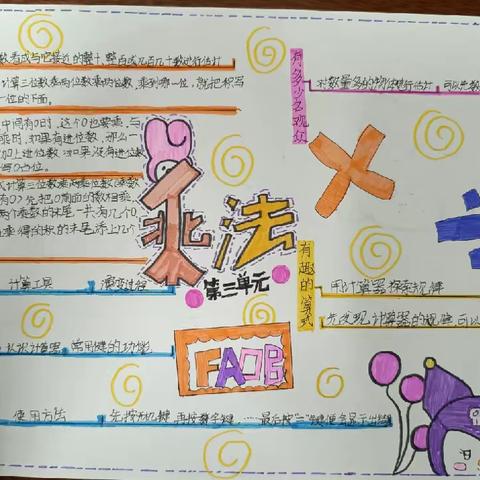 数看成与它接近的整十、整百或几百几十数进行估计
计算三位数乘两位数,乘到哪一位,就把积写
一位的下面。
中间有0时,这个0也要乘,与
乘时,如果有进位数,那么一
加上进位数,如果没有进位数
写0占位。
计算三位数乘两位数,乘数
有0,先把0前面的数相乘,
两个乘数的末尾一共有几个0,
乘得的积的末尾添上几个
计算工具 演变过程
认识计算器 常用键的功能
使用方法 先按开机键,再按数字键……最后按"="键便会显示出结果
乘法
第三单元
FAOB
有多少名观众
对数量多的物体进行估计,可以先数
有趣的算式
用计算器探索规律
先发现计算器的规律,可以